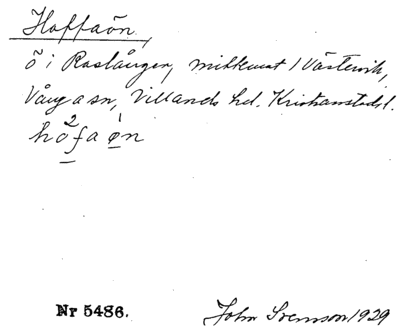 Hoffaön,
ö i Raslången, mitt emot Västervik,
Vånga sn, Villands hd. Kristianstads l.
hò²fa øn
Nr 5486. John Svensson 1929